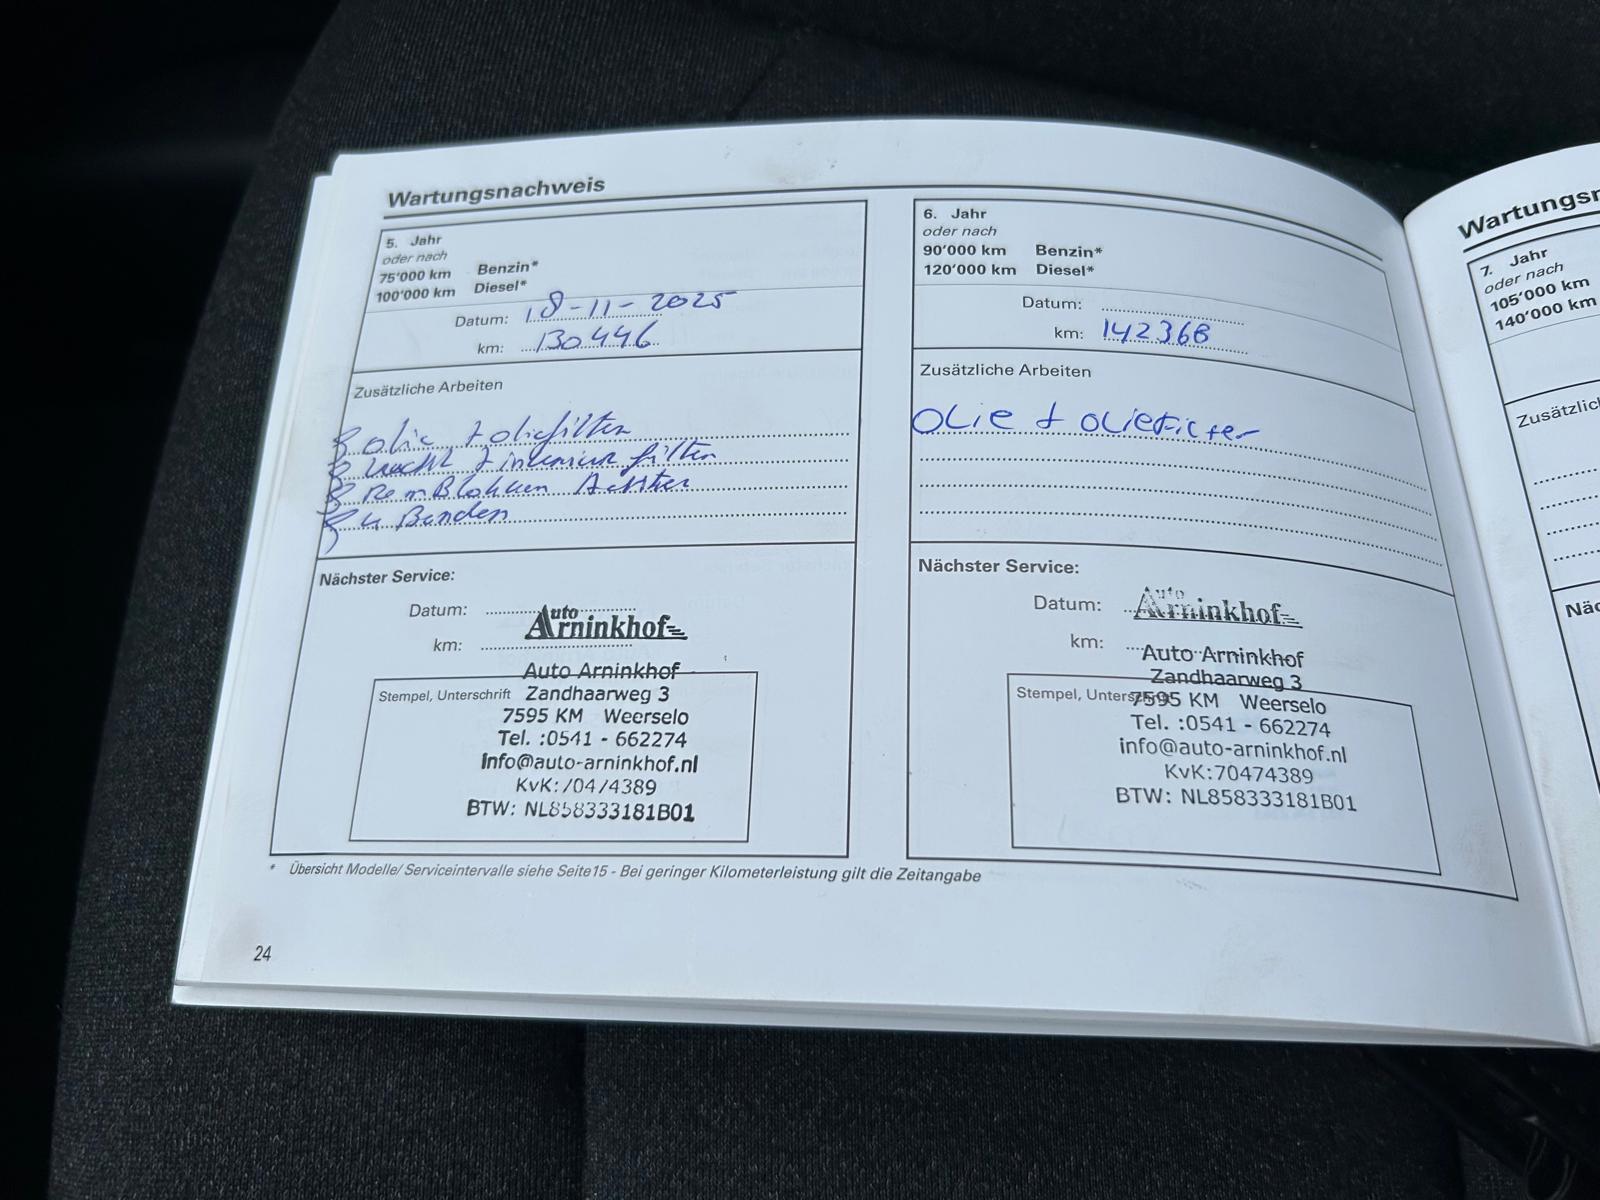 Wartungsnachweis
5. Jahr
oder nach
75'000 km Benzin*
100'000 km Diesel*
Datum: 18-11-2025
km: 130446
Zusätzliche Arbeiten
olie + oliefilter
lucht + interieur filter
Remblokken Achter
4 Banden
Nächster Service:
Datum:
km:
Auto Arninkhof
Auto Arninkhof
Stempel, Unterschrift
Zandhaarweg 3
7595 KM Weerselo
Tel. :0541 - 662274
info@auto-arninkhof.nl
KvK:70474389
BTW: NL858333181B01
6. Jahr
oder nach
90'000 km Benzin*
120'000 km Diesel*
Datum:
km: 142368
Zusätzliche Arbeiten
OLIE + OLIEFILTER
Nächster Service:
Datum:
km:
Auto Arninkhof
Auto Arninkhof
Zandhaarweg 3
Stempel, Unterschrift
7595 KM Weerselo
Tel. :0541 - 662274
info@auto-arninkhof.nl
KvK:70474389
BTW: NL858333181B01
* Übersicht Modelle/Serviceintervalle siehe Seite15 - Bei geringer Kilometerleistung gilt die Zeitangabe
24
7. Jahr
oder nach
105'000 km
140'000 km